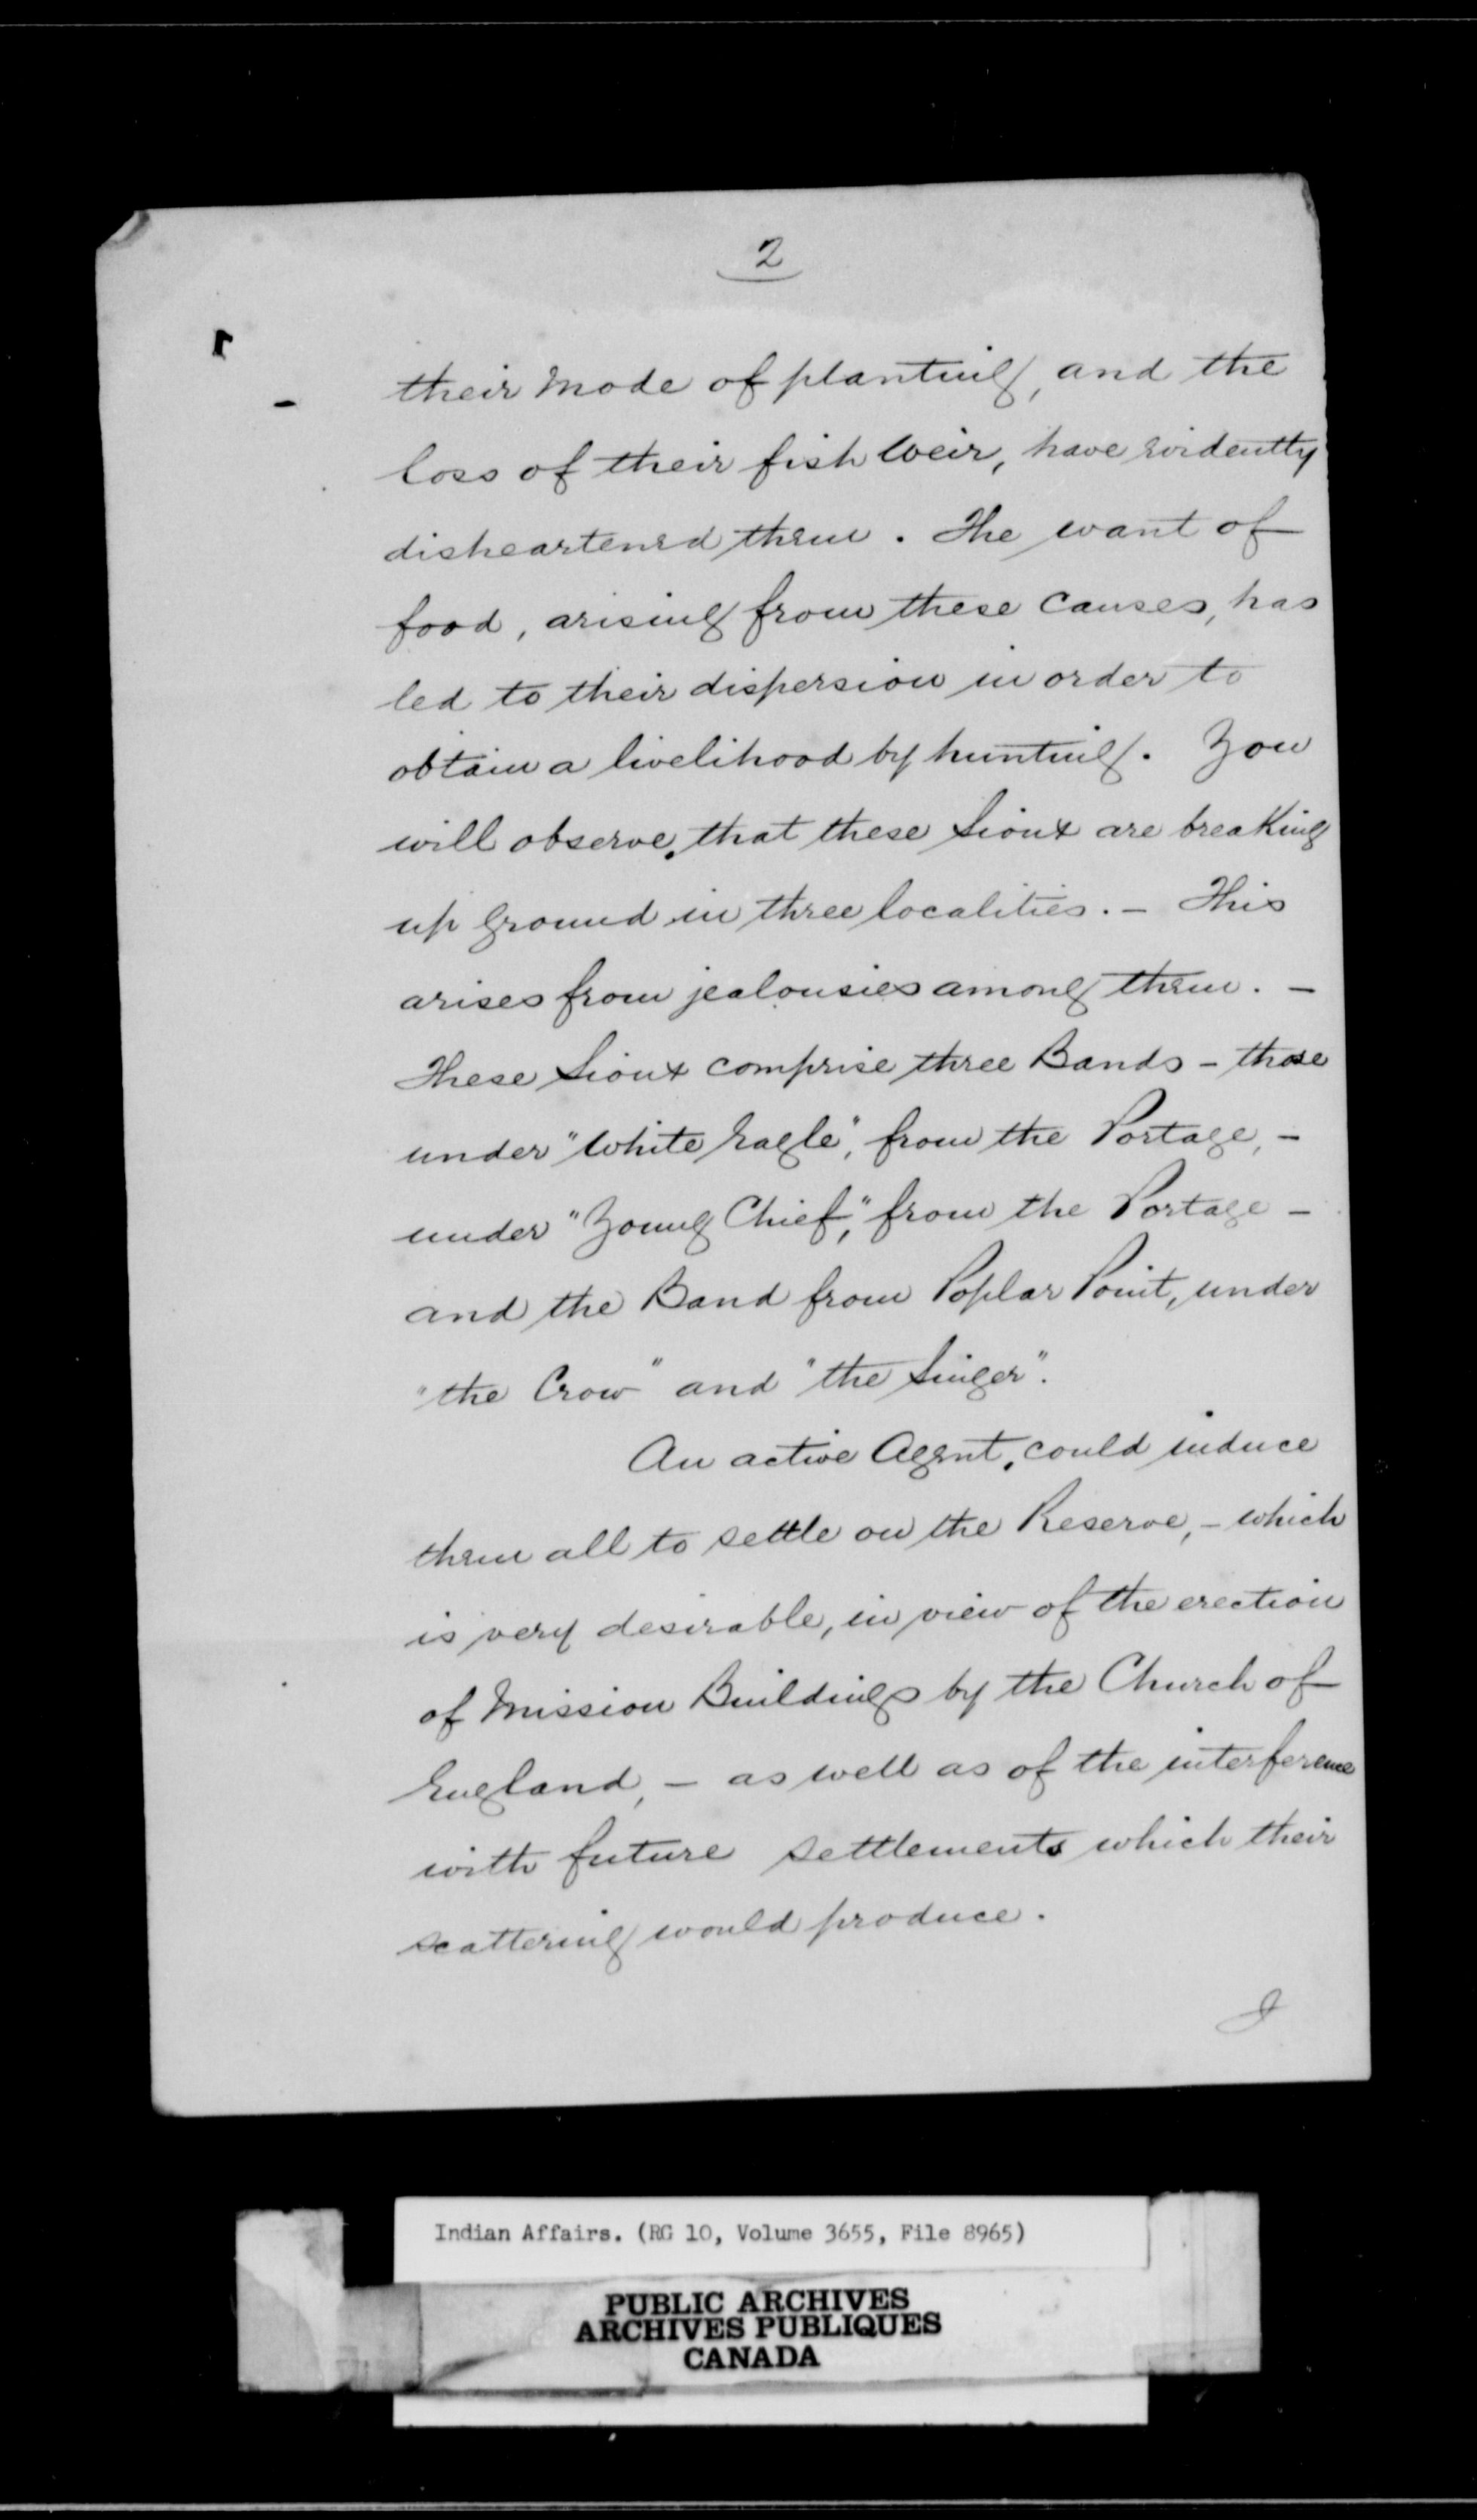 2
their mode of planting, and the
loss of their fish weir, have evidently
disheartened them. The want of
food, arising from these causes, has
led to their dispersion in order to
obtain a livelihood by hunting. You
will observe, that these Sioux are breaking
up ground in three localities. – This
arises from jealousies among them. –
These Sioux comprise three Bands – those
under "White Eagle", from the Portage, –
under "Young Chief," from the Portage –
and the Band from Poplar Point, under
"the Crow" and "the Singer".
An active Agent, could induce
them all to settle on the Reserve, – which
is very desirable, in view of the erection
of Mission Buildings by the Church of
England, – as well as of the interference
with future settlements which their
scattering would produce.
I
Indian Affairs. (RG 10, Volume 3655, File 8965)
PUBLIC ARCHIVES
ARCHIVES PUBLIQUES
CANADA